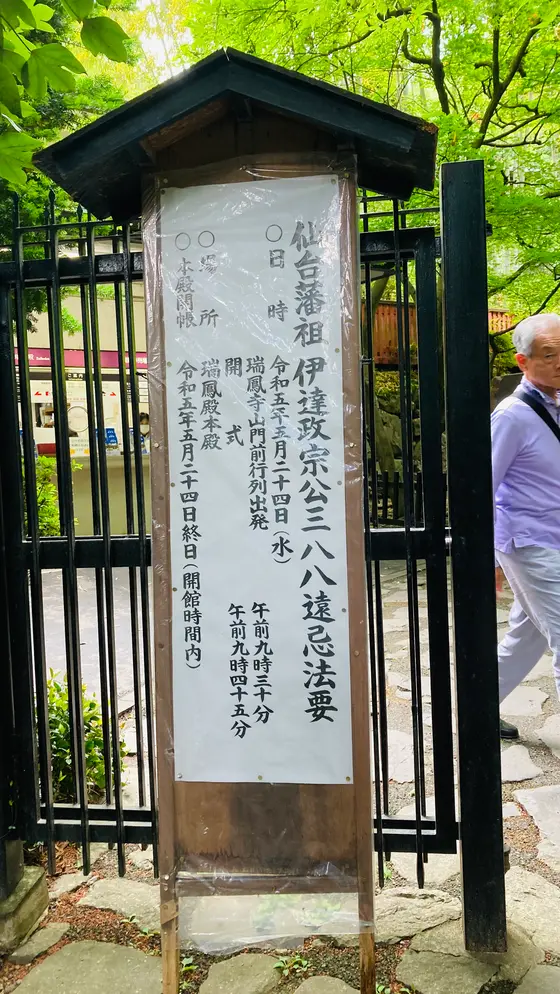 仙台藩祖 伊達政宗公三八八遠忌法要
○日時 令和五年五月二十四日(水)
瑞鳳寺山門前行列出発 午前九時三十分
開式 午前九時四十五分
○場所 瑞鳳殿本殿
○本殿開帳 令和五年五月二十四日終日(開館時間内)